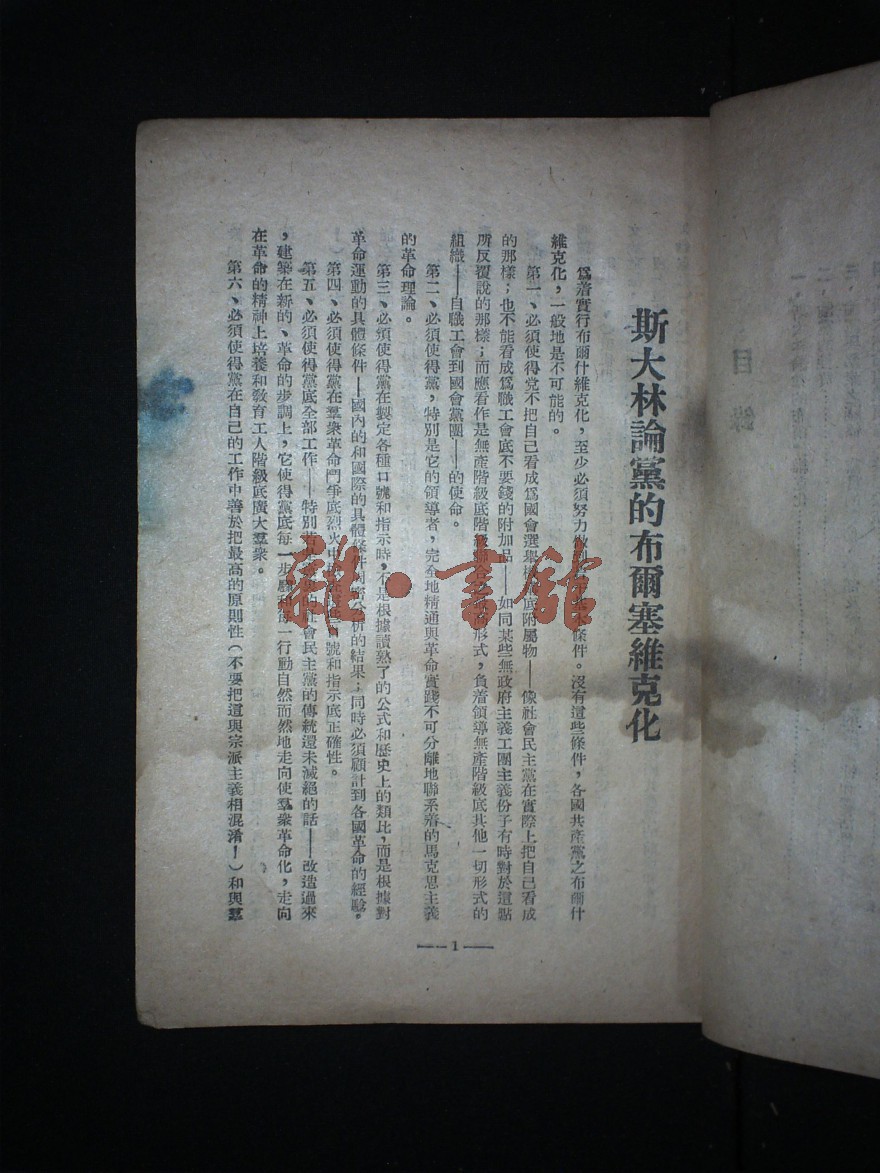 斯大林論黨的布爾塞維克化
爲着實行布爾什維克化，至少必須努力 條件。沒有這些條件，各國共產黨之布爾什
維克化，一般地是不可能的。
第一、必須使得党不把自己看成爲國會選舉 底附屬物——像社會民主黨在實際上把自己看成
的那樣；也不能看成爲職工會底不要錢的附加品——如同某些無政府主義工團主義份子有時對於這點
所反覆說的那樣；而應看作是無產階級底階級聯合 形式，負着領導無產階級底其他一切形式的
組織——自職工會到國會黨團——的使命。
第二、必須使得黨，特別是它的領導者，完全地精通與革命實踐不可分離地聯系着的馬克思主義
的革命理論。
第三、必須使得黨在製定各種口號和指示時，不是根據讀熟了的公式和歷史上的類比，而是根據對
革命運動的具體條件——國內的和國際的具體條件 分析的結果；同時必須顧計到各國革命的經驗。
第四、必須使得黨在羣衆革命鬥爭底烈火中 號和指示底正確性。
第五、必須使得黨底全部工作——特別 社會民主黨的傳統還未滅絕的話——改造過來
，建築在新的、革命的步調上，它使得黨底每一步驟和每一行動自然而然地走向使羣衆革命化，走向
在革命的精神上培養和教育工人階級底廣大羣衆。
第六、必須使得黨在自己的工作中善於把最高的原則性（不要把這與宗派主義相混淆！）和與羣
—— 1 ——
目錄
雜·書館